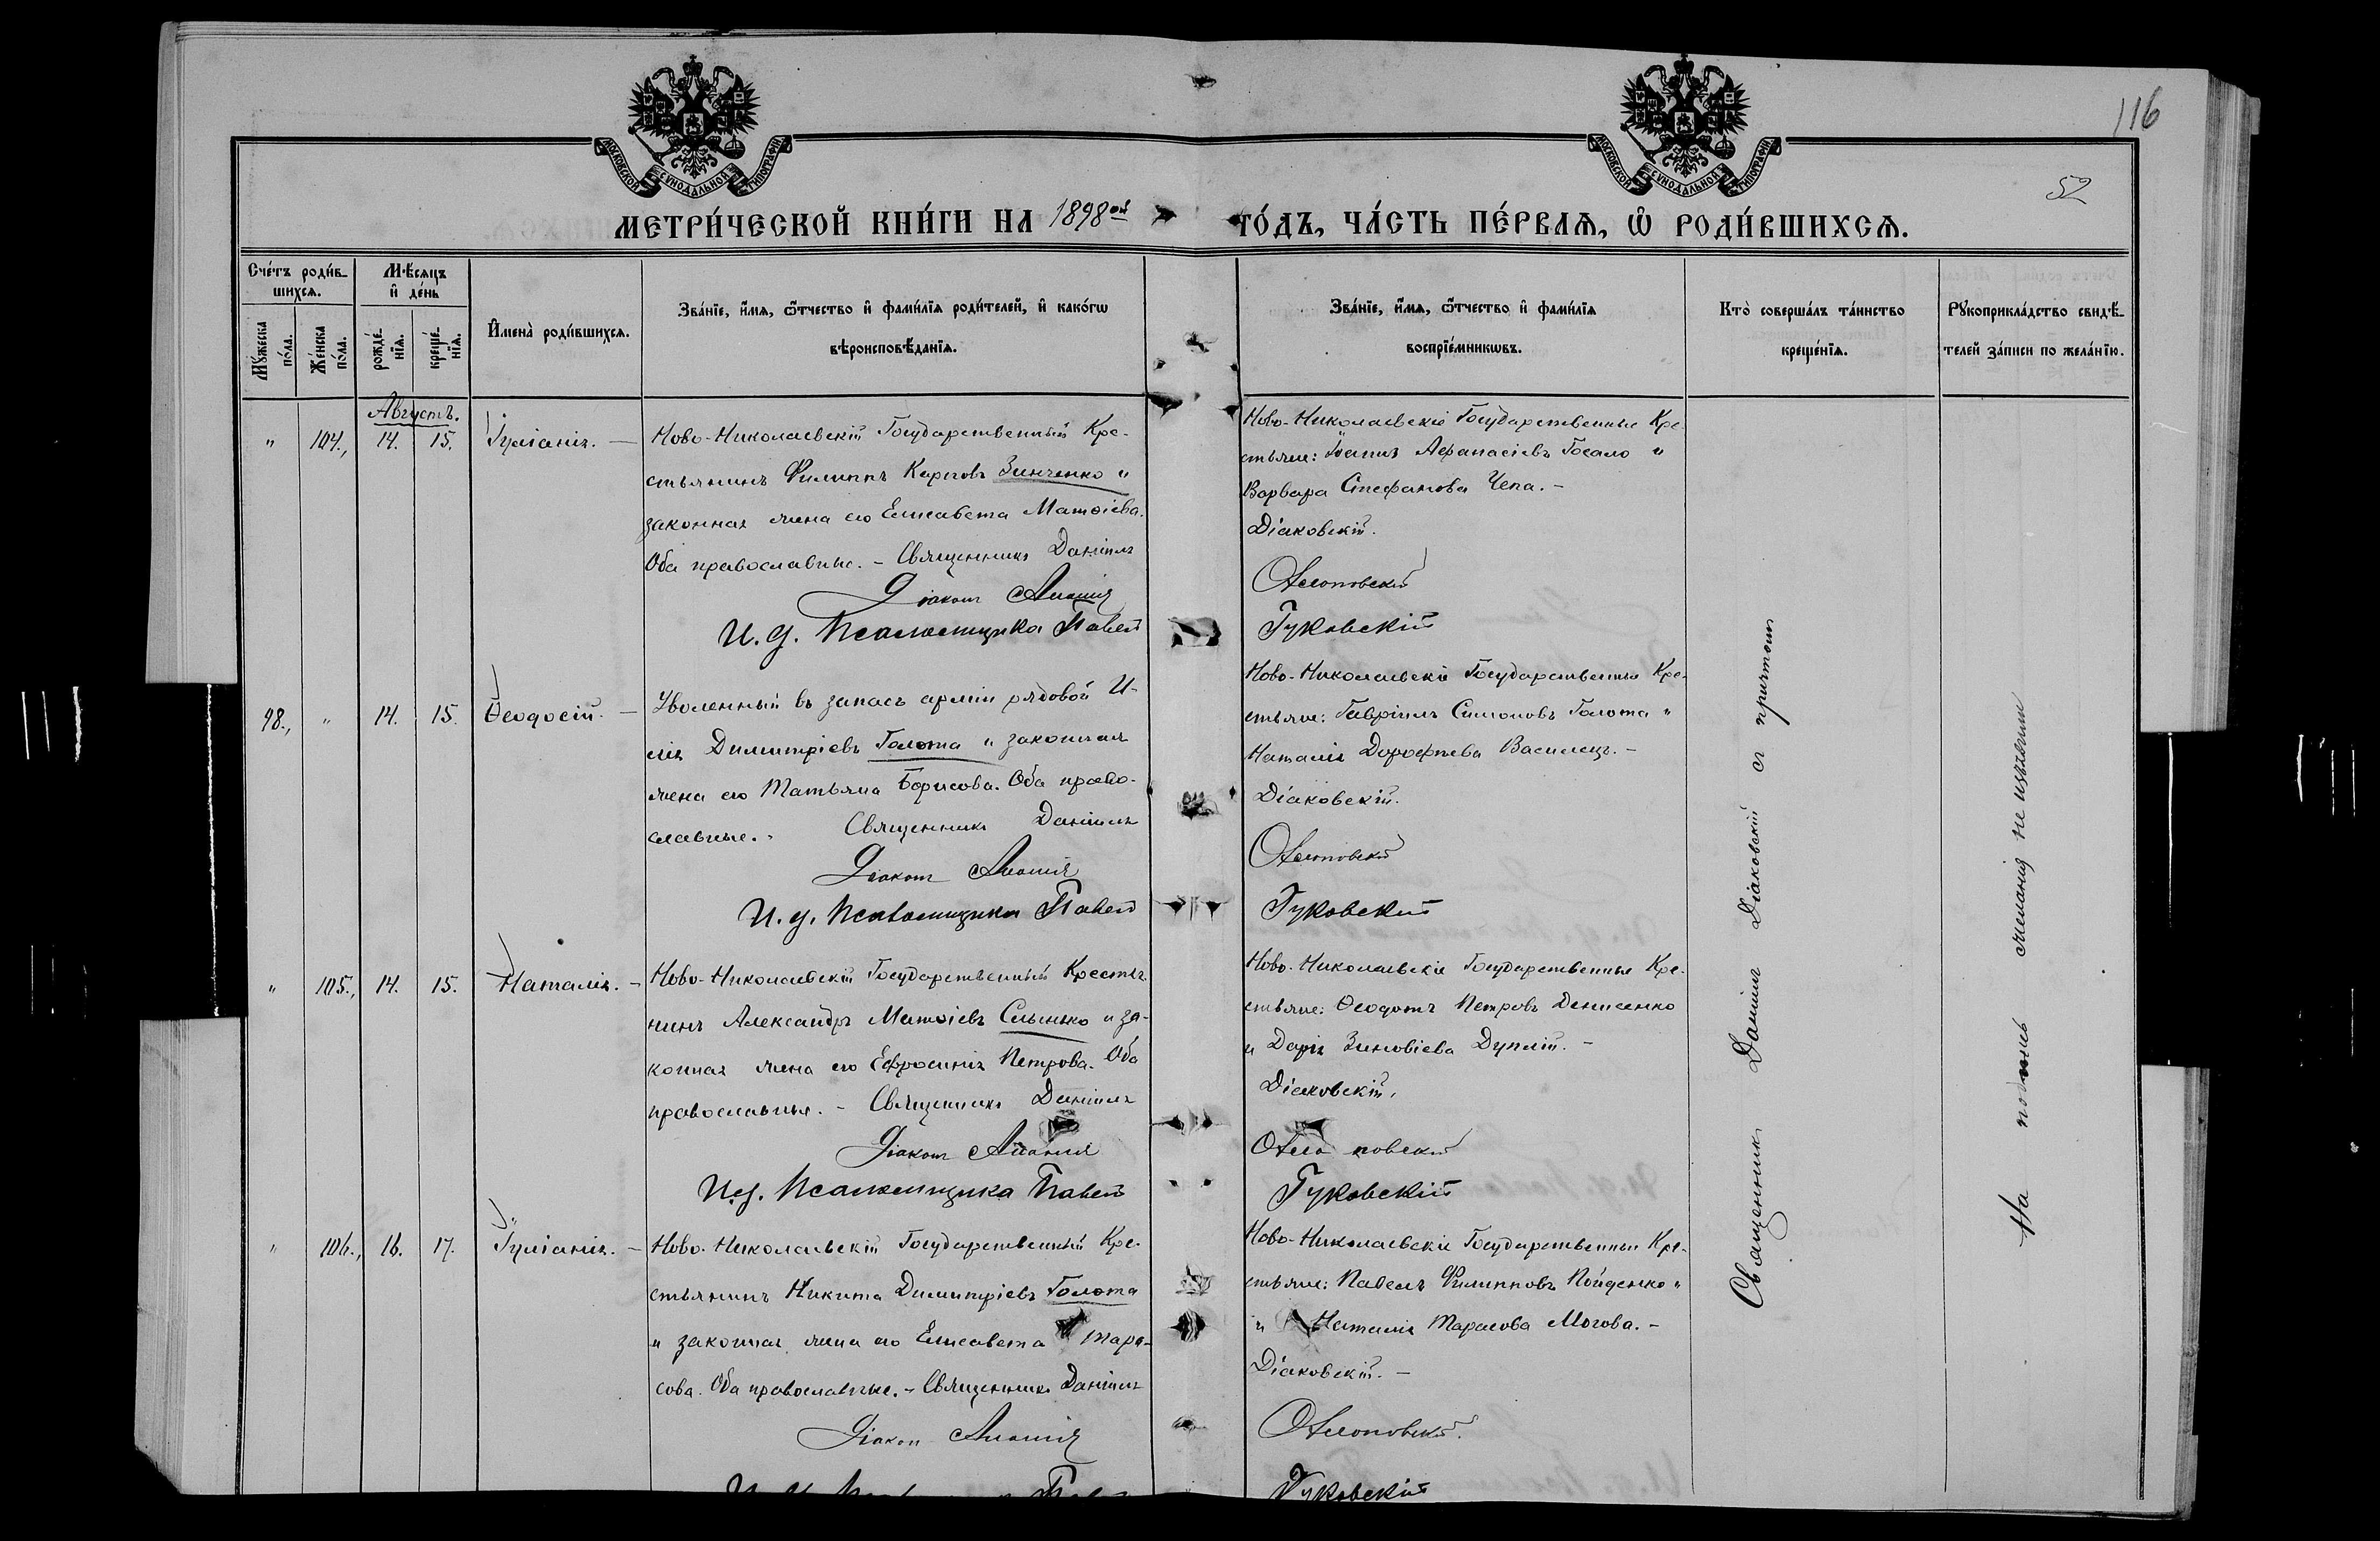 116
52
МОСКОВСКОЙ СѴНОДАЛЬНОЙ ТИПОГРАФІИ
МОСКОВСКОЙ СѴНОДАЛЬНОЙ ТИПОГРАФІИ
МЕТРИ́ЧЕСКОЙ КНИ́ГИ НА 1898ой ГО́ДЪ, ЧА́СТЬ ПЕ́РВАѦ, Ѡ҆ РОДИ́ВШИХСѦ.
Сче́тъ роди́в-
шихсѧ.
Мꙋ́жеска по́ла.
Же́нска по́ла.
Мѣ́сѧцъ
и҆ де́нь
рожде́нїѧ.
креще́нїѧ.
И҆мена̀ роди́вшихсѧ.
Зва́нїе, и҆́мѧ, ѻ҆́тчество и҆ фами́лїѧ роди́телей, и҆ како́гѡ
вѣроисповѣ́данїѧ.
Зва́нїе, и҆́мѧ, ѻ҆́тчество и҆ фами́лїѧ
воспрїе́мникѡвъ.
Кто̀ соверша́лъ та́инство
креще́нїѧ.
Рꙋкоприкла́дство свидѣ́-
телей за́писи по жела́нїю.
Августъ.
" 104., 14. 15. Іуліанія. —
Ново-Николаевскій Государственный Кре-
стьянинъ Филиппъ Карповъ Зинченко и
законная жена его Елисавета Матѳіева.
Оба православные. – Священникъ Даніилъ
Діаконъ Ананія
И. д. Псаломщика Павел
Ново-Николаевскіе Государственные Кре-
стьяне: Іоаннъ Аѳанасіевъ Госало и
Варвара Стефанова Чепа. –
Діаковскій.
Гуковскій
98., " 14. 15. Ѳеодосій. —
Уволенный въ запасъ арміи рядовой И-
лія Димитріевъ Голота и законная
жена его Татьяна Борисова. Оба право-
славные. - Священникъ Даніилъ
Діаконъ Ананія
И. д. Псаломщика Павел
Ново-Николаевскіе Государственные Кре-
стьяне: Гавріилъ Симоновъ Голота и
Наталія Дороѳеева Василец. –
Діаковскій.
Гуковскій
" 105., 14. 15. Наталія. –
Ново-Николаевскій Государственный Крестья-
нинъ Александръ Матѳіевъ и за-
конная жена его Ефросинія Петрова. Оба
православные. – Священникъ Даніилъ
Діаконъ Ананія
И. д. Псаломщика Павел
Ново-Николаевскіе Государственные Кре-
стьяне: Ѳеодотъ Петровъ Денисенко
и Дарія Зиновіева Дуплій. –
Діаковскій.
Гуковскій
" 106., 16. 17. Іуліанія. –
Ново-Николаевскій Государственный Кре-
стьянинъ Никита Димитріевъ Голота
и законная жена его Елисавета Тара-
сова. Оба православные. – Священникъ Даніилъ
Діакон Ананія
Ново-Николаевскіе Государственные Кре-
стьяне: Павелъ Филипповъ Пойденко и
и Наталія Тарасова Могова. –
Діаковскій. –
Гуковскій
Священникъ Даніилъ Діаковскій съ причтомъ
На подпись желанія не изъявили